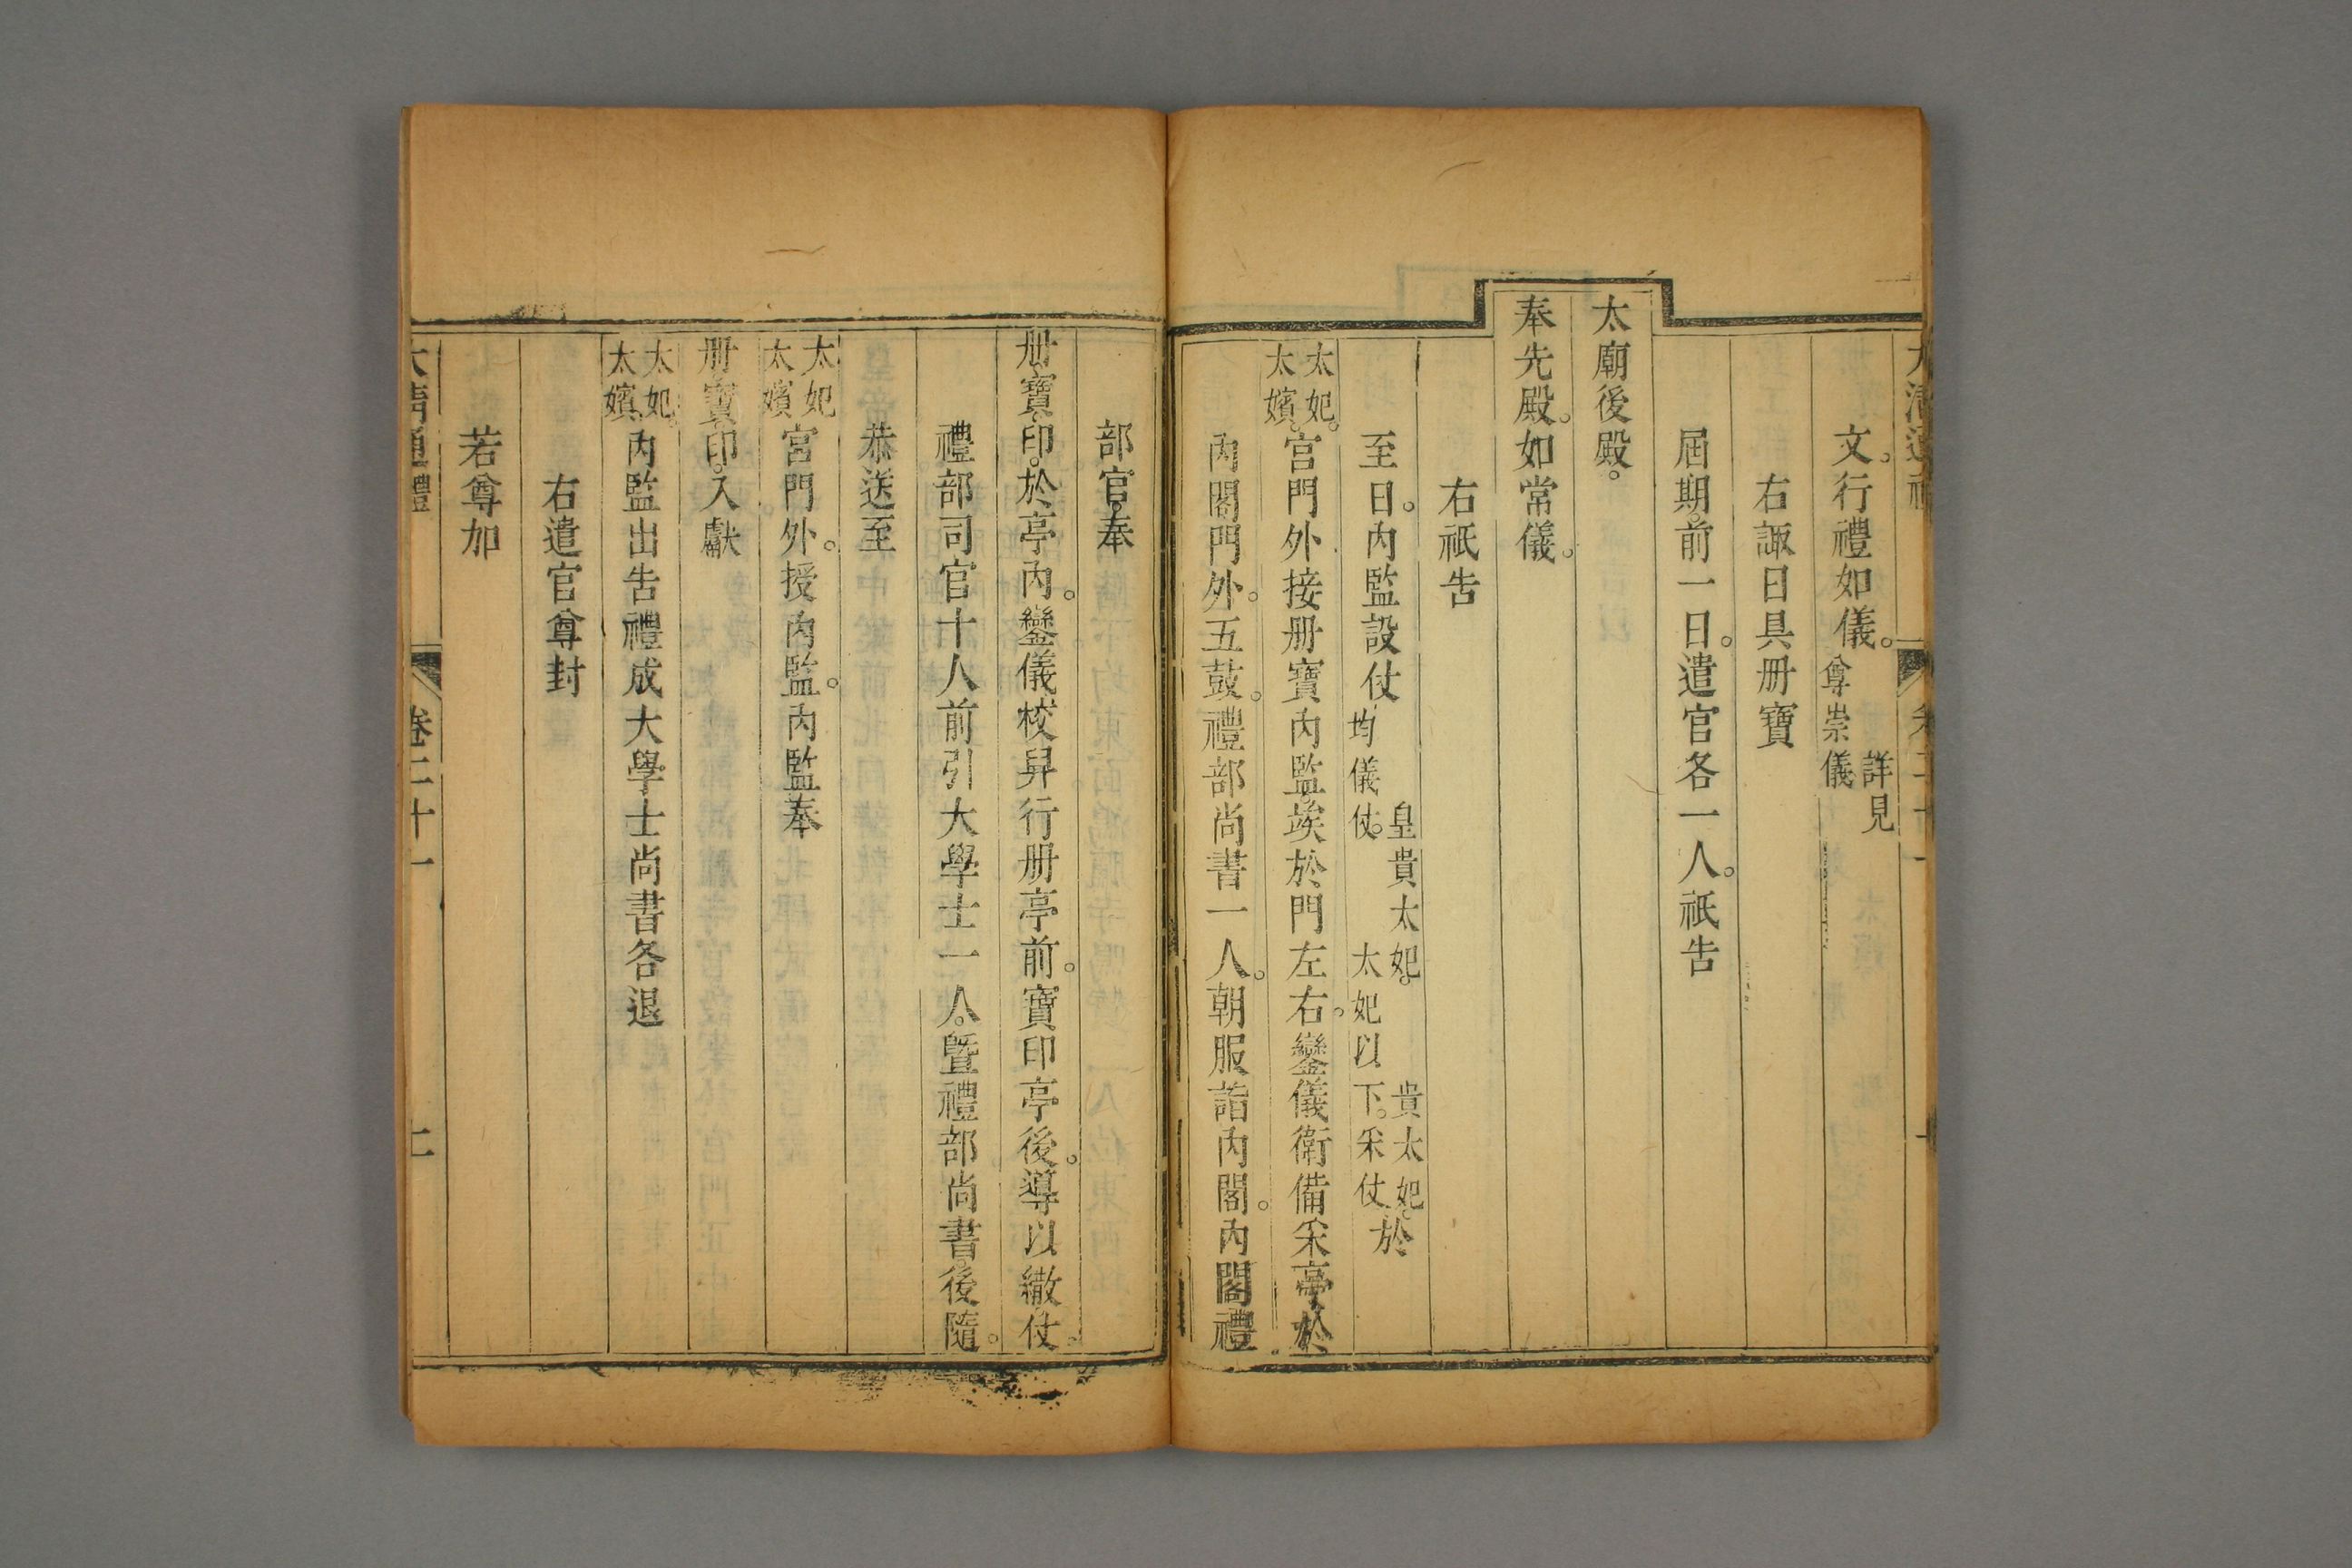 文。行禮如儀。詳見尊崇儀
右諏日具冊寶
屆期前一日。遣官各一人。祇告
太廟後殿。
奉先殿。如常儀。
右祇告
至日。內監設仗皇貴太妃。貴太妃。均儀仗。太妃以下。采仗。於
太妃。太嬪。宮門外接冊寶內監。竢於門左右。鑾儀衛備采亭於
內閣門外。五鼓。禮部尚書一人。朝服詣內閣。內閣禮
部官。奉
冊。寶。印。於亭內。鑾儀校舁行冊亭前。寶印亭後。導以繖仗。
禮部司官十人前引大學士一人。暨禮部尚書。後隨。
恭送至
太妃太嬪宮門外。授內監。內監奉
冊。寶。印。入獻
太妃。太嬪。內監出告禮成大學士尚書各退
右遣官尊封
若尊加
大清通禮 卷三十一 二